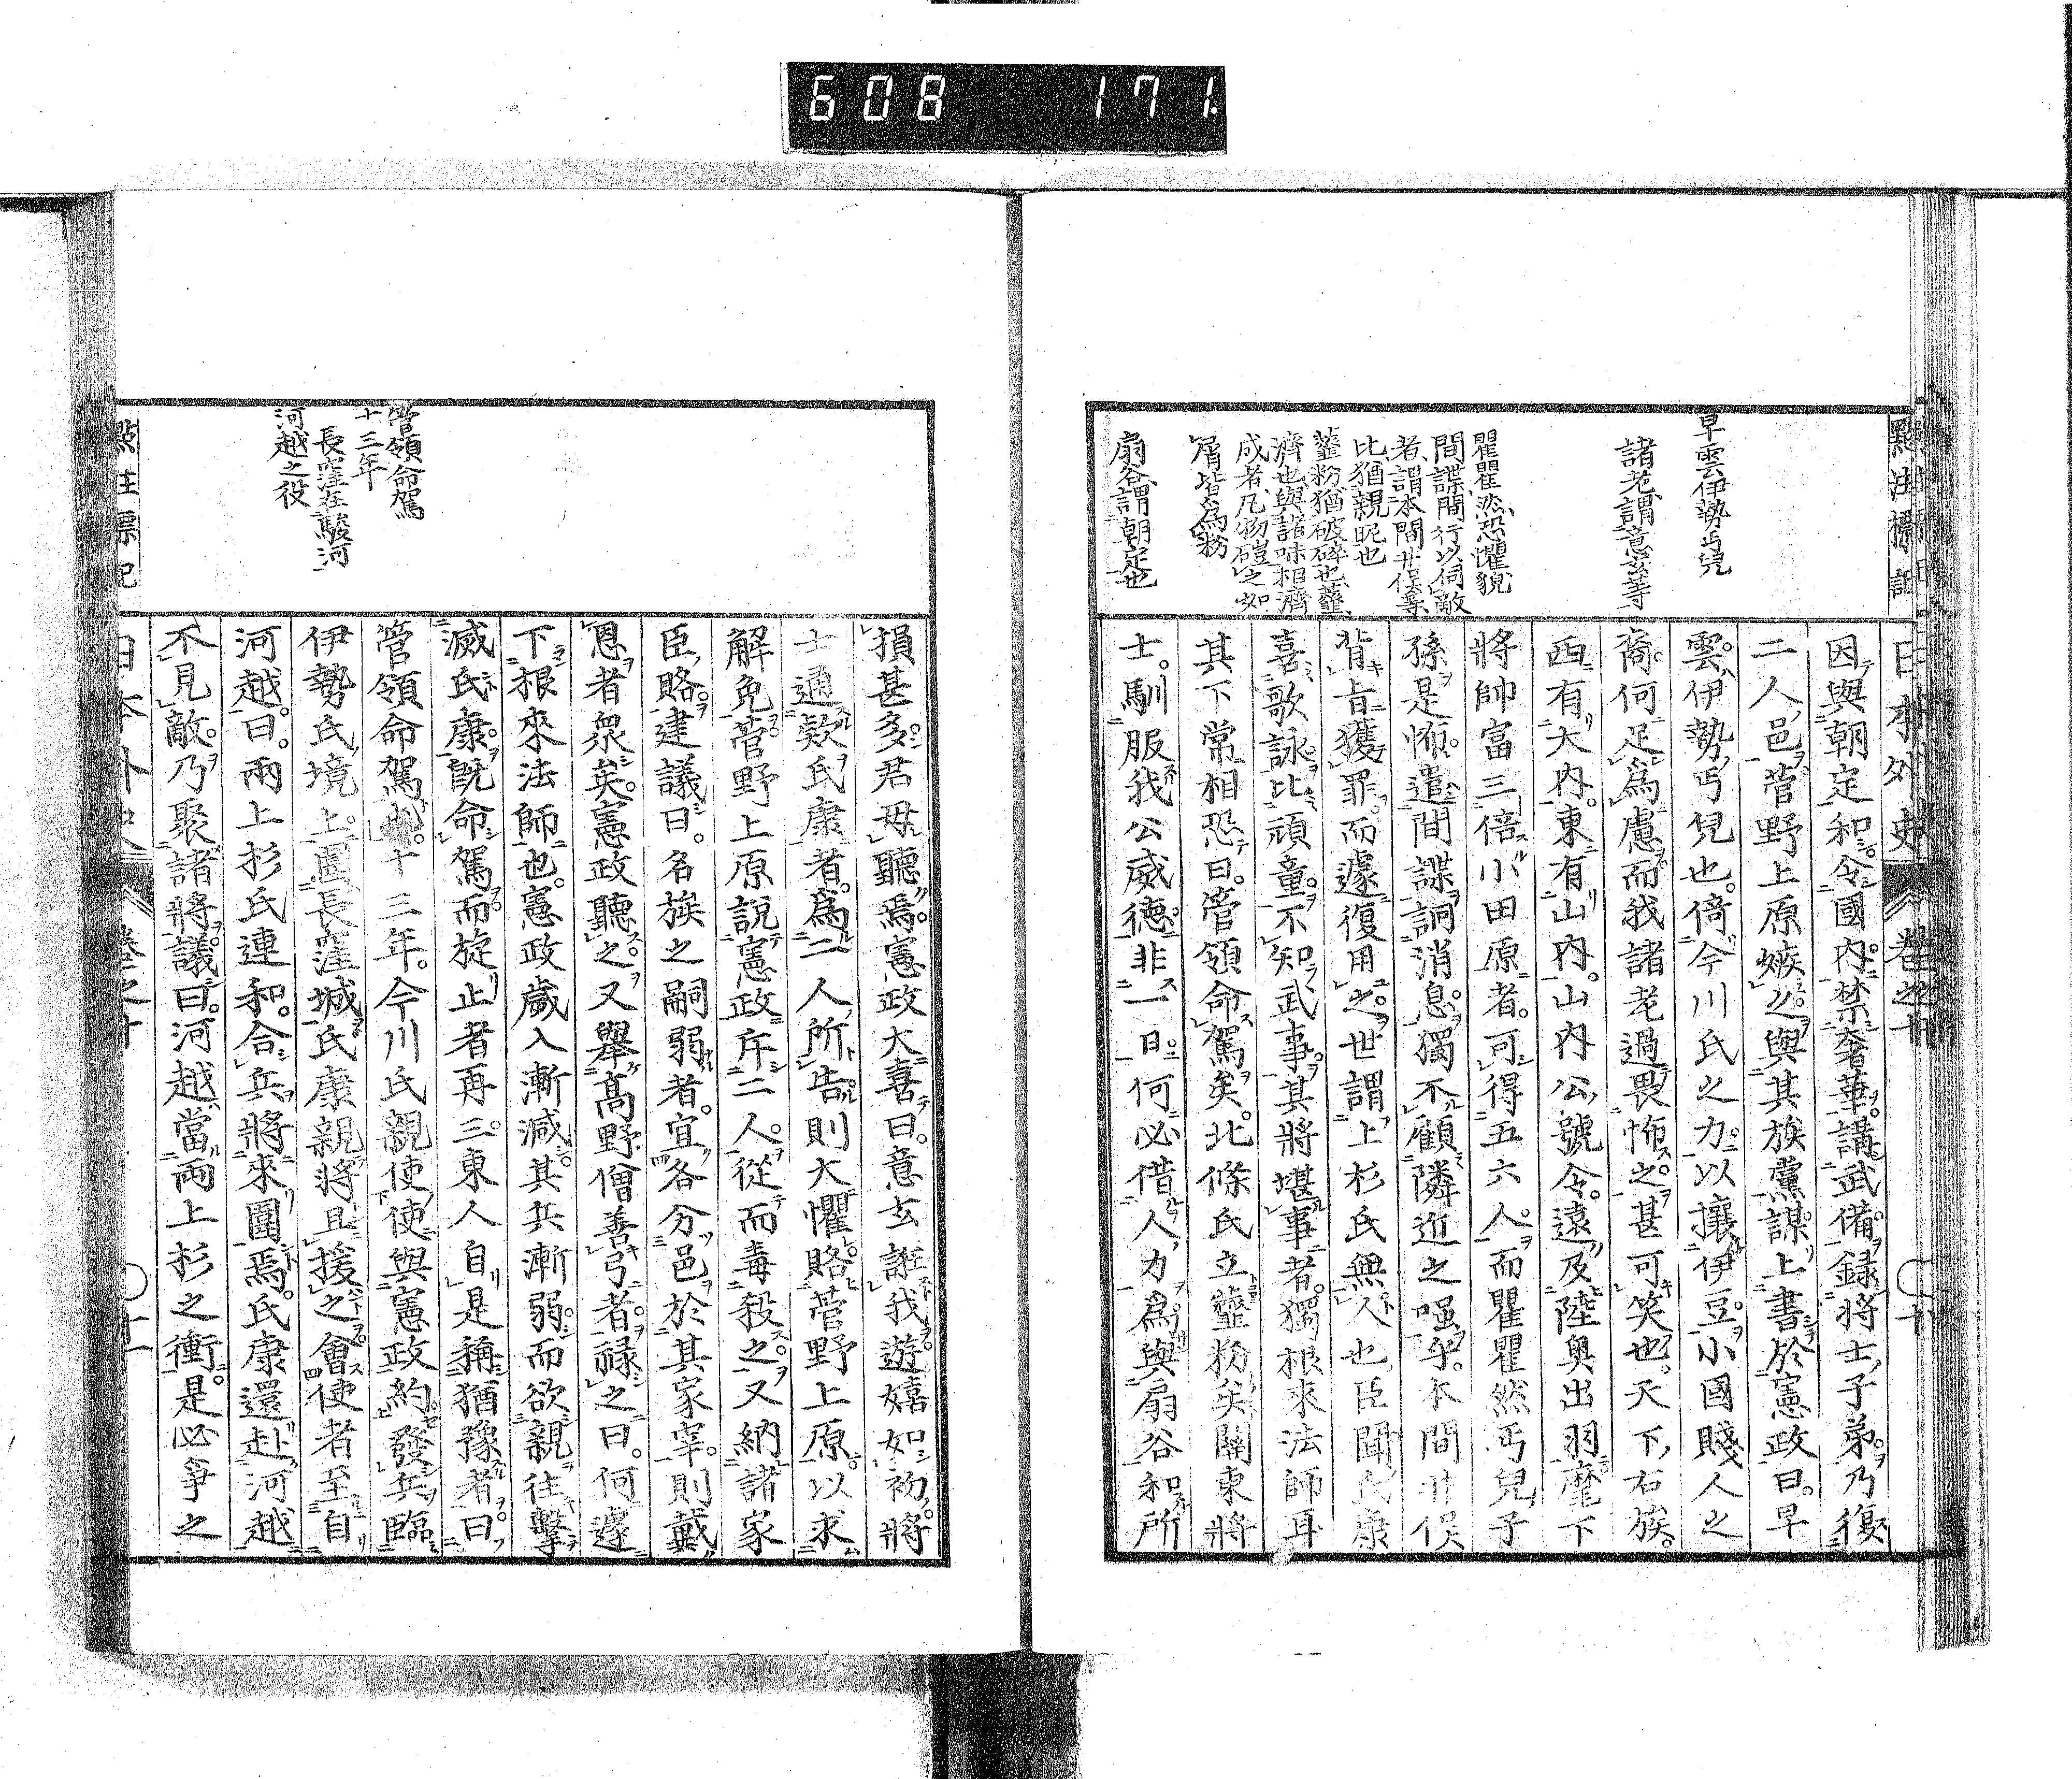 608 171
點注標記
早雲伊勢丐兒
諸老謂意玄等
瞿瞿然恐懼貌
間諜間行以伺敵
者謂本間
比猶親昵也
虀粉猶破碎也虀
濟也與諸味相濟
成者凡物磑之如
屑皆為粉
扇谷謂朝定也
日本外史 卷之十 〇十
因與朝定和令國內禁奢華講武備錄將士子弟乃復
二人邑菅野上原嫉之與其族黨謀上書於憲政曰早
雲伊勢丐兒也倚今川氏之力以攘伊豆小國賤人之
裔何足為慮而我諸老過畏怖之甚可笑也天下右族
西有大內東有山內山內公號令遠及陸奧出羽麾下
將帥富三倍小田原者可得五六人而瞿瞿然丐兒子
孫是怖遣間諜詗消息獨不顧隣近之嗤乎本間
背旨獲罪而遽復用之世謂上杉氏無人也臣聞氏康
喜歌詠比頑童不知武事其將堪事者獨根來法師耳
其下常相恐曰管領命駕矣北條氏立虀粉矣關東將
士馴服我公威德非一日何必借人力為與扇谷和所
損甚多君毋聽焉憲政大喜曰意玄誑我遊嬉如初將
士通欵氏康者為二人所告則大懼賂菅野上原以求
解免菅野上原說憲政斥二人從而毒殺之又納諸家
臣賂建議曰名族之嗣弱者宜各分邑於其家宰則戴
恩者衆矣憲政聽之又舉高野僧善弓者祿之曰何遽
下根來法師也憲政歲入漸減其兵漸弱而欲親往擊
滅氏康既命駕而旋止者再三東人自是稱猶豫者曰
管領命駕十三年今川氏親使使與憲政約發兵臨
伊勢氏境上圍長窪城氏康親將且援之會使者至自
河越曰兩上杉氏連和合兵將來圍焉氏康還赴河越
不見敵乃聚諸將議曰河越當兩上杉之衝是必爭之
管領命駕
十三年
長窪在駿河
河越之役
點註標記
日本外史 卷之十